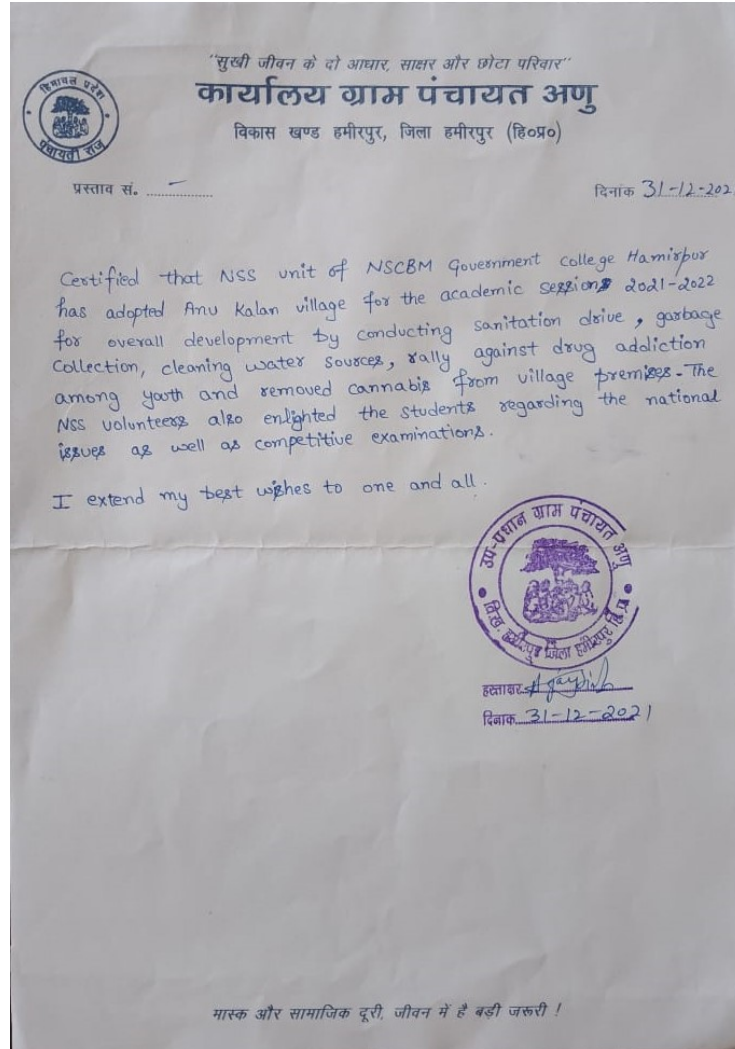 "सुखी जीवन के दो आधार, साक्षर और छोटा परिवार"
हिमाचल प्रदेश
पंचायती राज
कार्यालय ग्राम पंचायत अणु
विकास खण्ड हमीरपुर, जिला हमीरपुर (हि०प्र०)
प्रस्ताव सं. ...............
दिनांक 31-12-202
Certified that NSS unit of NSCBM Government College Hamirpur
has adopted Anu Kalan village for the academic sessions 2021-2022
for overall development by conducting sanitation drive, garbage
Collection, cleaning water sources, rally against drug addiction
among youth and removed cannabis from village premises. The
NSS volunteers also enlighted the students regarding the national
issues as well as competitive examinations.
I extend my best wishes to one and all.
उप-प्रधान ग्राम पंचायत अणु
वि.ख. हमीरपुर जिला हमीरपुर हि.प्र.
हस्ताक्षर
दिनांक 31-12-2021
मास्क और सामाजिक दूरी, जीवन में है बड़ी जरूरी !